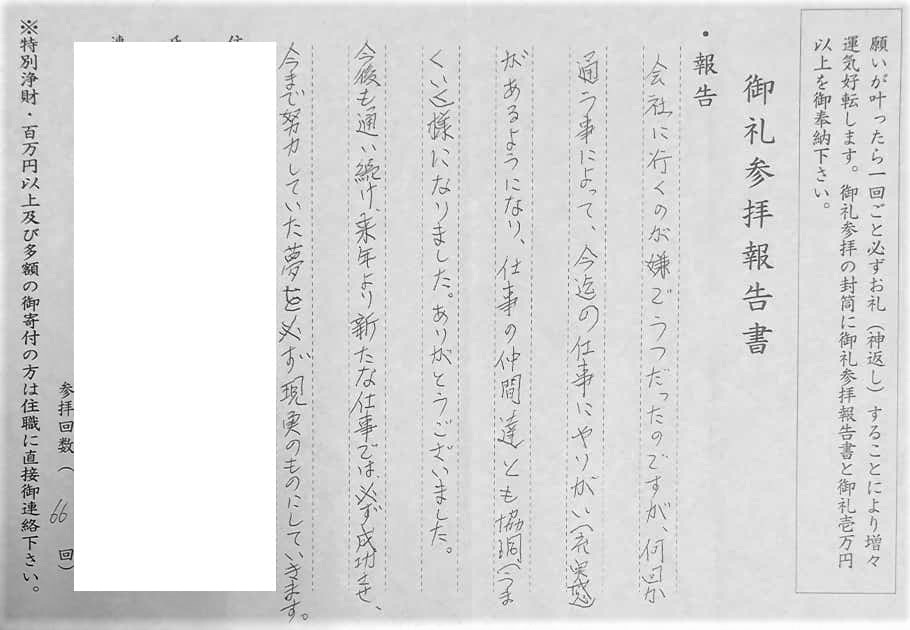 願いが叶ったら一回ごと必ずお礼（神返し）することにより増々
運気好転します。御礼参拝の封筒に御礼参拝報告書と御礼壱万円
以上を御奉納下さい。
御礼参拝報告書
・報告
会社に行くのが嫌でうつだったのですが、何回か
通う事によって、今迄の仕事にやりがい(充実感)
があるようになり、仕事の仲間達とも協調(うま
くいく)様になりました。ありがとうございました。
今後も通い続け、来年より新たな仕事では、必ず成功させ、
今まで努力していた夢を必ず現実のものにしていきます。
参拝回数（66回）
※特別浄財・百万円以上及び多額の御寄付の方は住職に直接御連絡下さい。